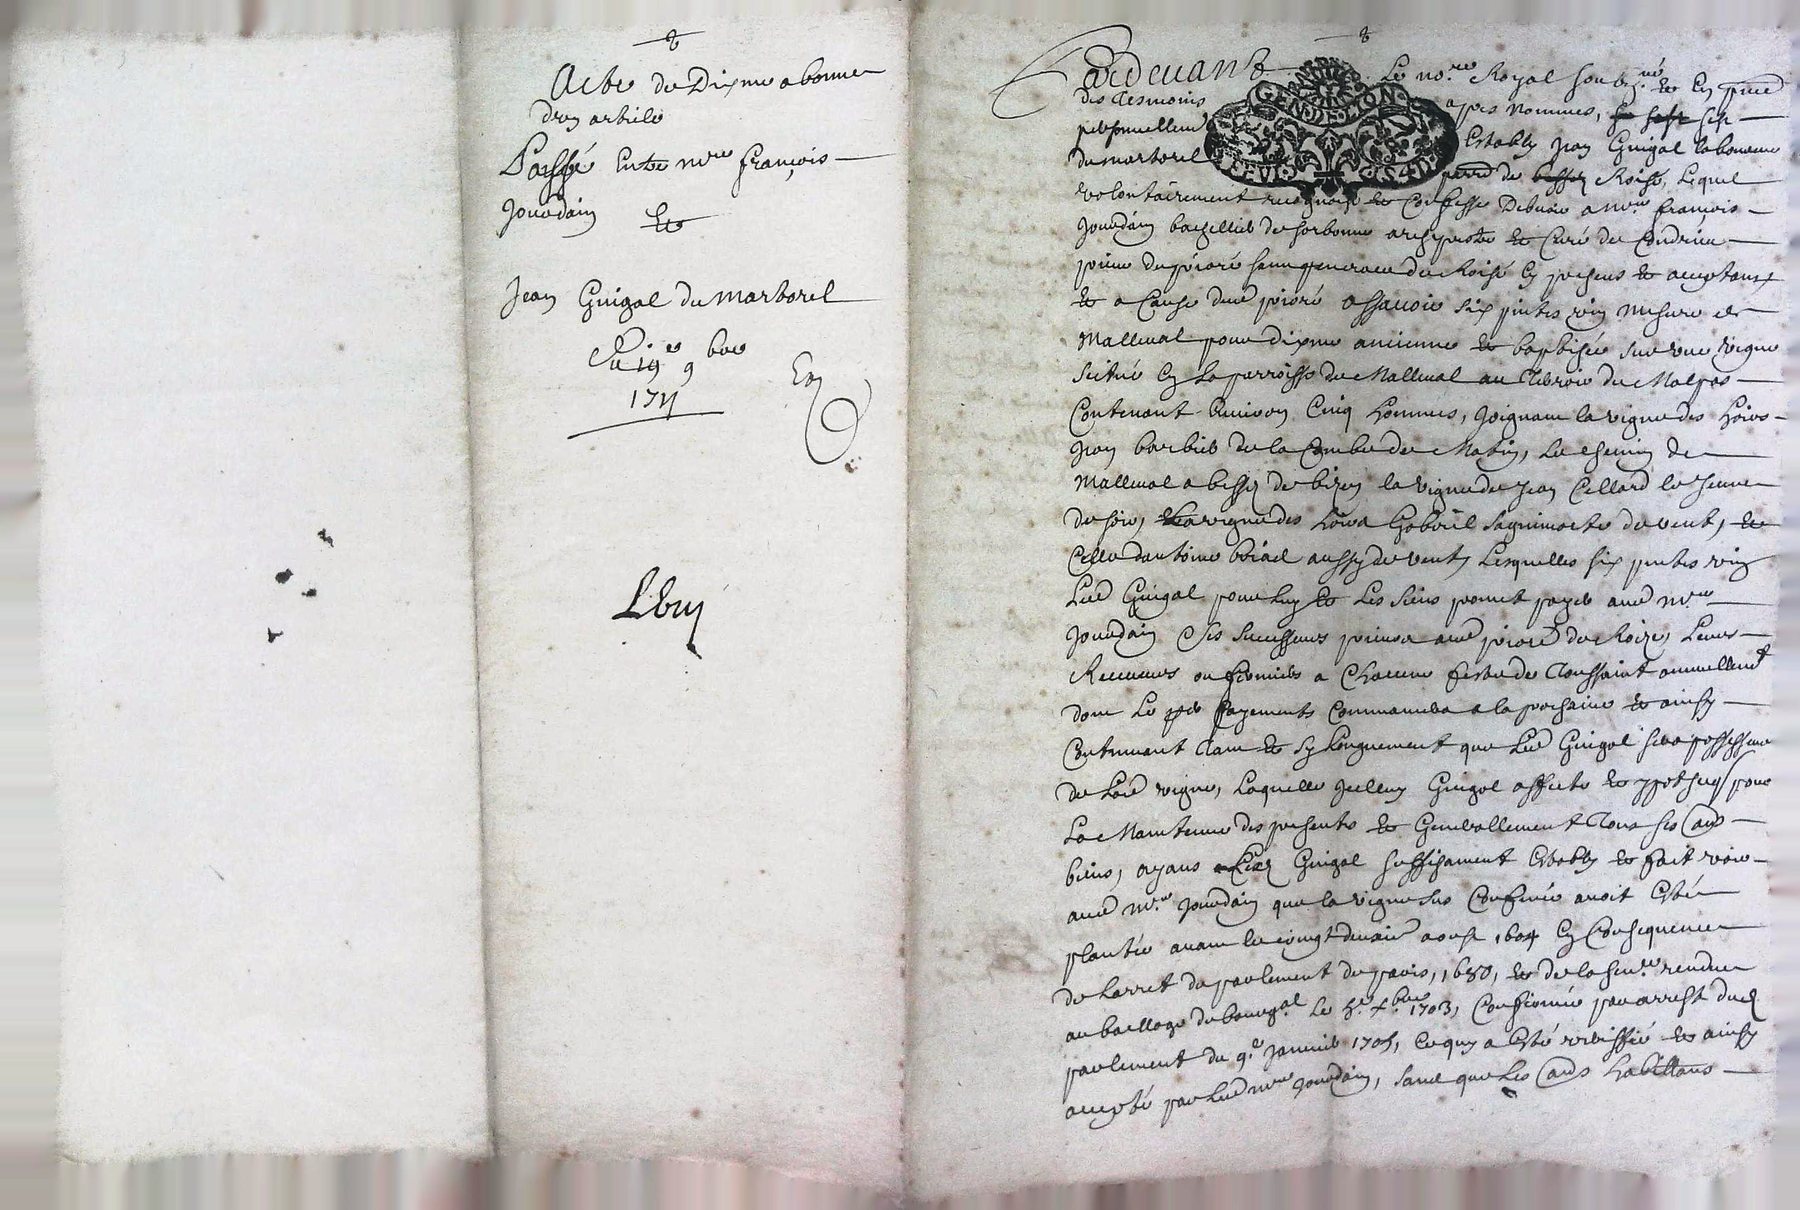 Acte de Dixme abonné
Passé Entre mre françois
Jourdain et
Jean Guigal du martorel
Du 19e 9bre
1711
Pardevant Le nore Royal soubzné et En pnce
des tesmoins apres Nommes,
personnellemt Estably Jean Guigal laboureur
du martorel parre de Roisé, Lequel
volontairement recognoist et Confesse Debvoir a mre françois
Jourdain bachellier de sorbonne archyprestre et Curé de Condrieu
prieur du prioré de Roisé En presens et acceptant
et a Cause dud prioré assavoir six pintes vin mesure de
Malleval pour dixme ancienne et baptisée sur une vigne
scitué En la parroisse de Malleval au Terroir de Malpas
Contenant Environ Cinq hommés, Joignant la vigne des hoirs
Jean barbier de la Combe de Matin, Le chemin de
Malleval a bessey de bize la vigne de Jean Cellard le Jeune
de soir, La vigne des hoirs Gabriel de vent, et
Celle dantoine aussy de vent, Lesquelles six pintes vin
Led Guigal pour Luy et Les siens promet payer aud mre
Jourdain ses successeurs prieurs aud prioré de Roizé, Leurs
Receveurs ou fermiers a Chacune feste de Toussaint annuellemt
dont Le pr payements Commancera a la prochaine et ainsy
Continuant Tant et sy Longuement que Led Guigal sera possesseur
de Lad vigne, Laquelle Icelluy Guigal affecte et ypotheque pour
La Maintenue des presentes et Generallement Tous ses aus
biens, ayant Led Guigal suffisament Estably et fait voir
aud mre Jourdain que la vigne sus Confinée avoit Esté
plantée avant le aoust 1604 En Consequence
de Larret du parlement de paris, 1680, et de la sence rendue
au baillage de bourgal Le 5e xbre 1703, Confirmée par arrest dud
parlement du 9e Janvier 1705, Ce quy a Esté veriffié et ainsy
accepté par Led mre Jourdain, sans que Les habittans